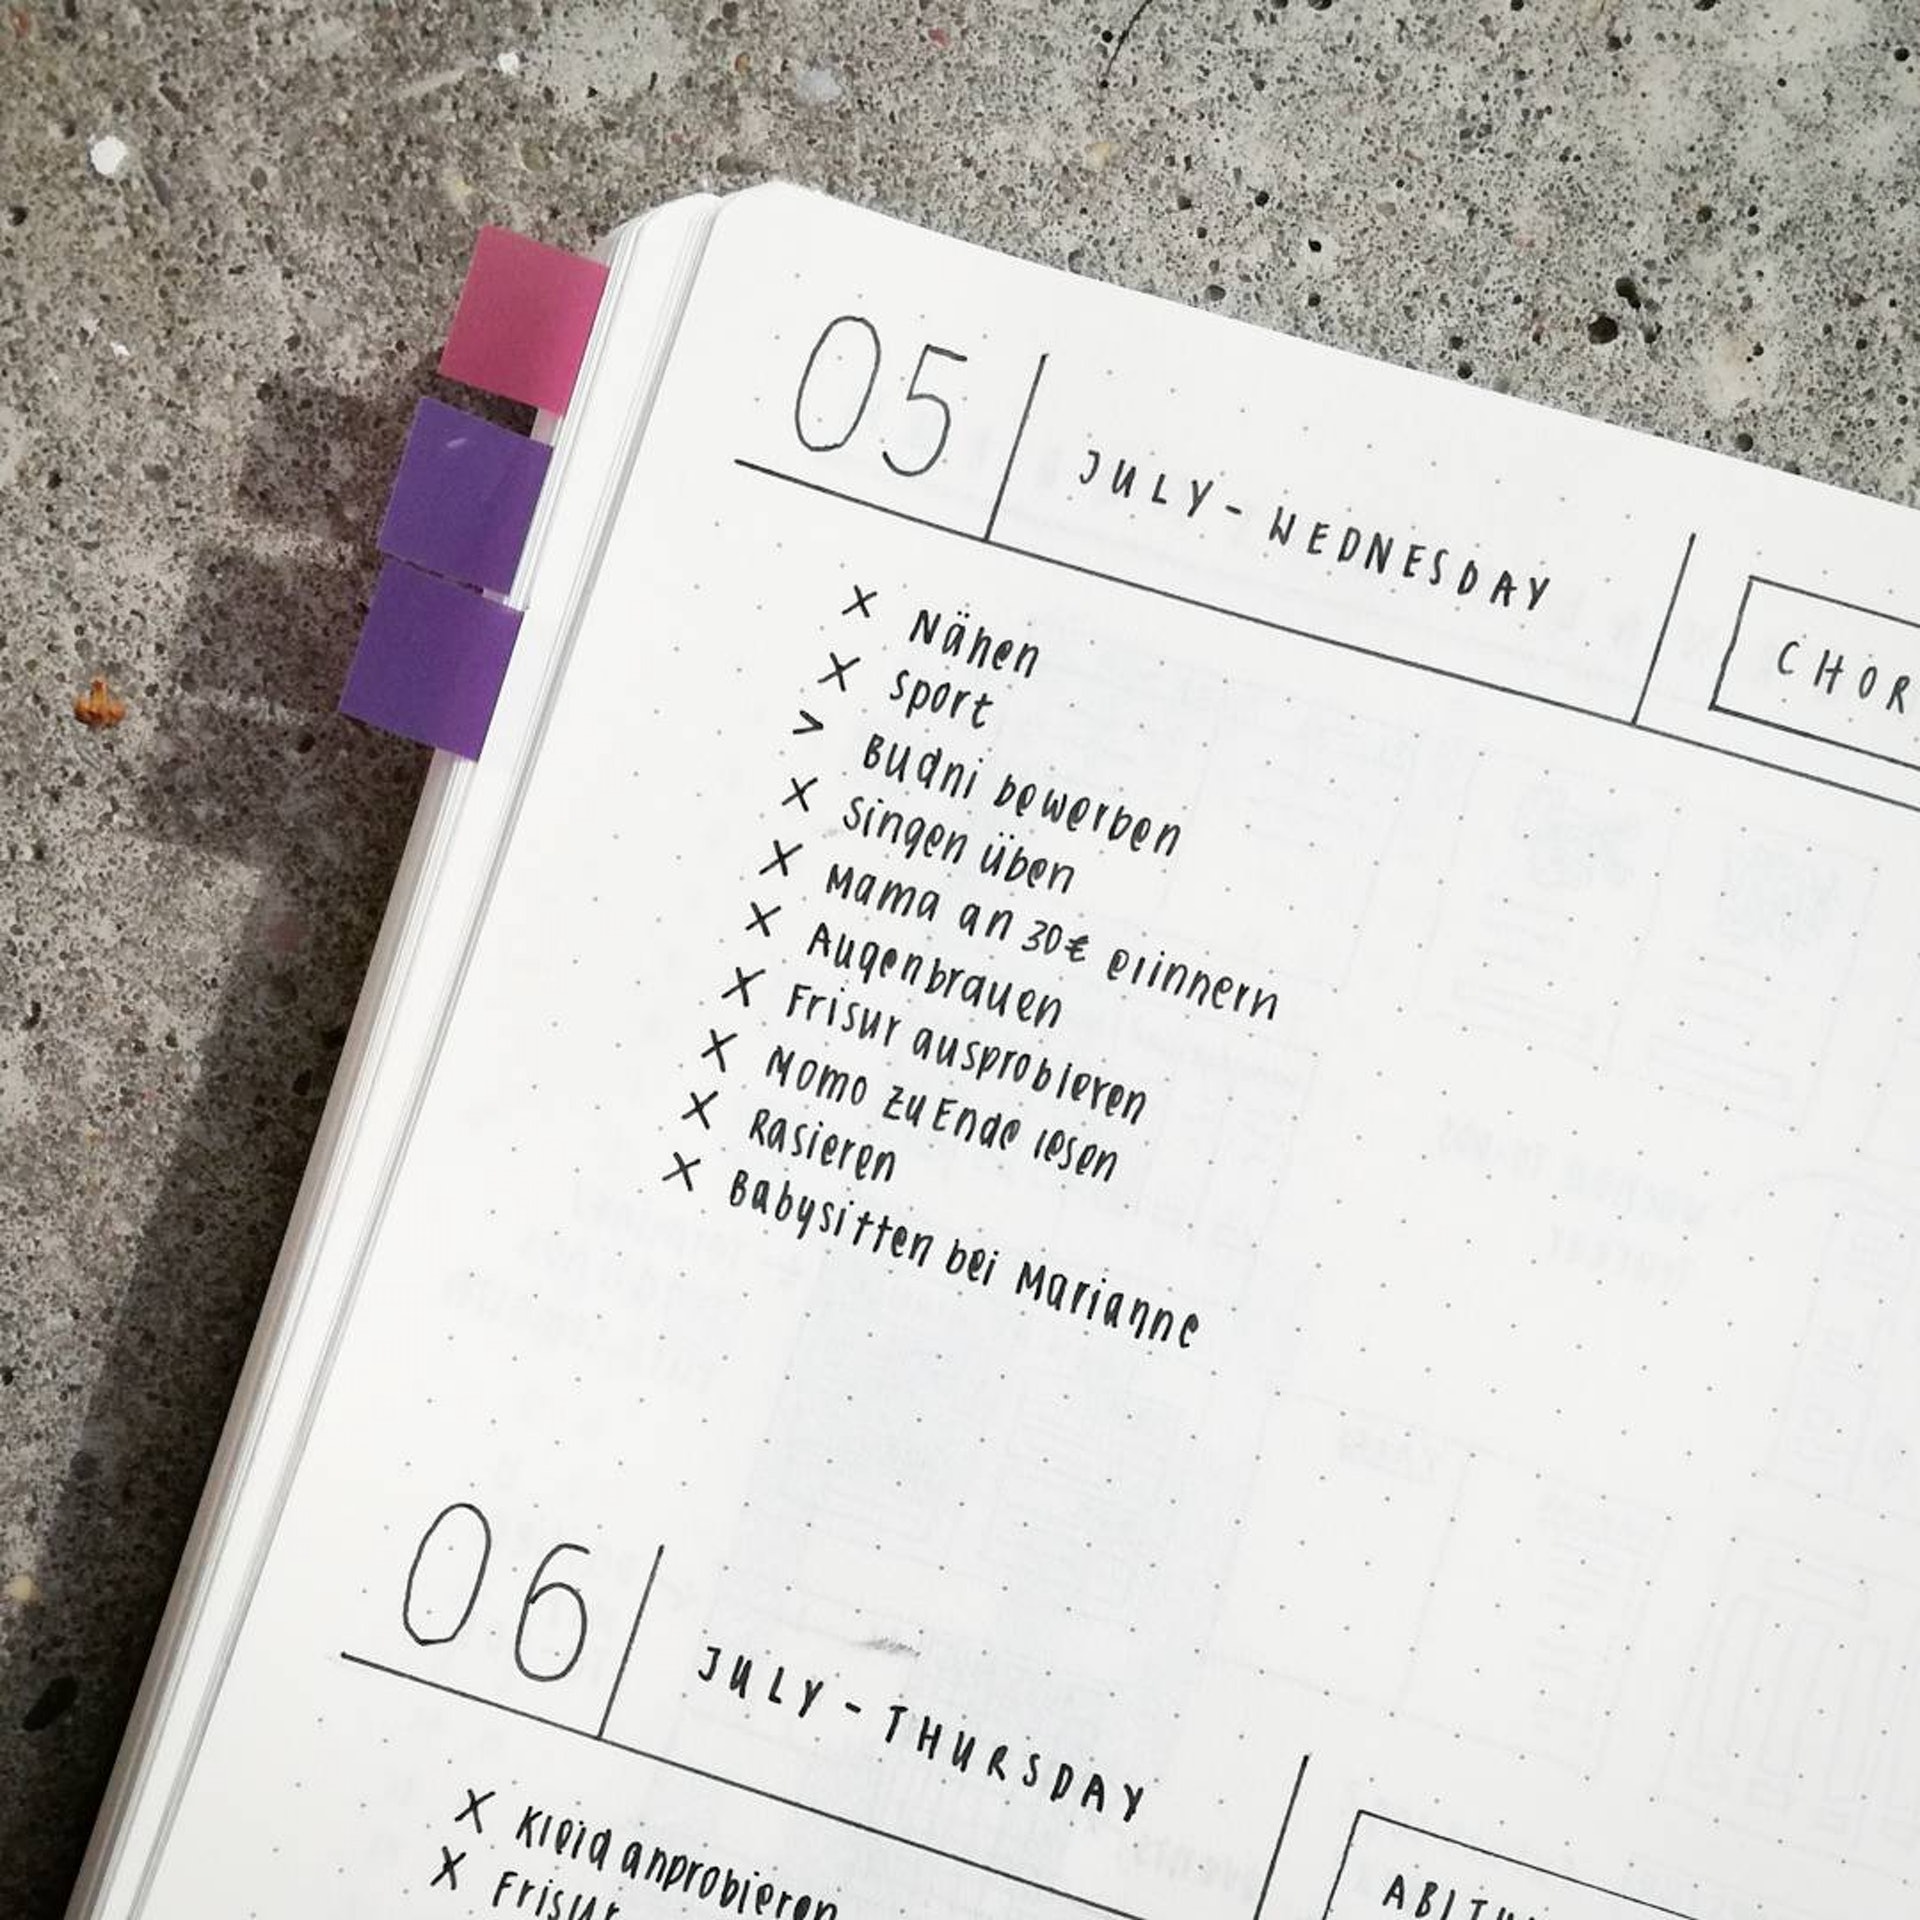 05 JULY - WEDNESDAY
CHOR
X Nähen
X Sport
> Budni bewerben
X Singen üben
X Mama an 30€ erinnern
X Augenbrauen
X Frisur ausprobieren
X Momo zu Ende lesen
X Rasieren
X Babysitten bei Marianne
06 JULY - THURSDAY
ABITU
X Kleid anprobieren
X Frisur